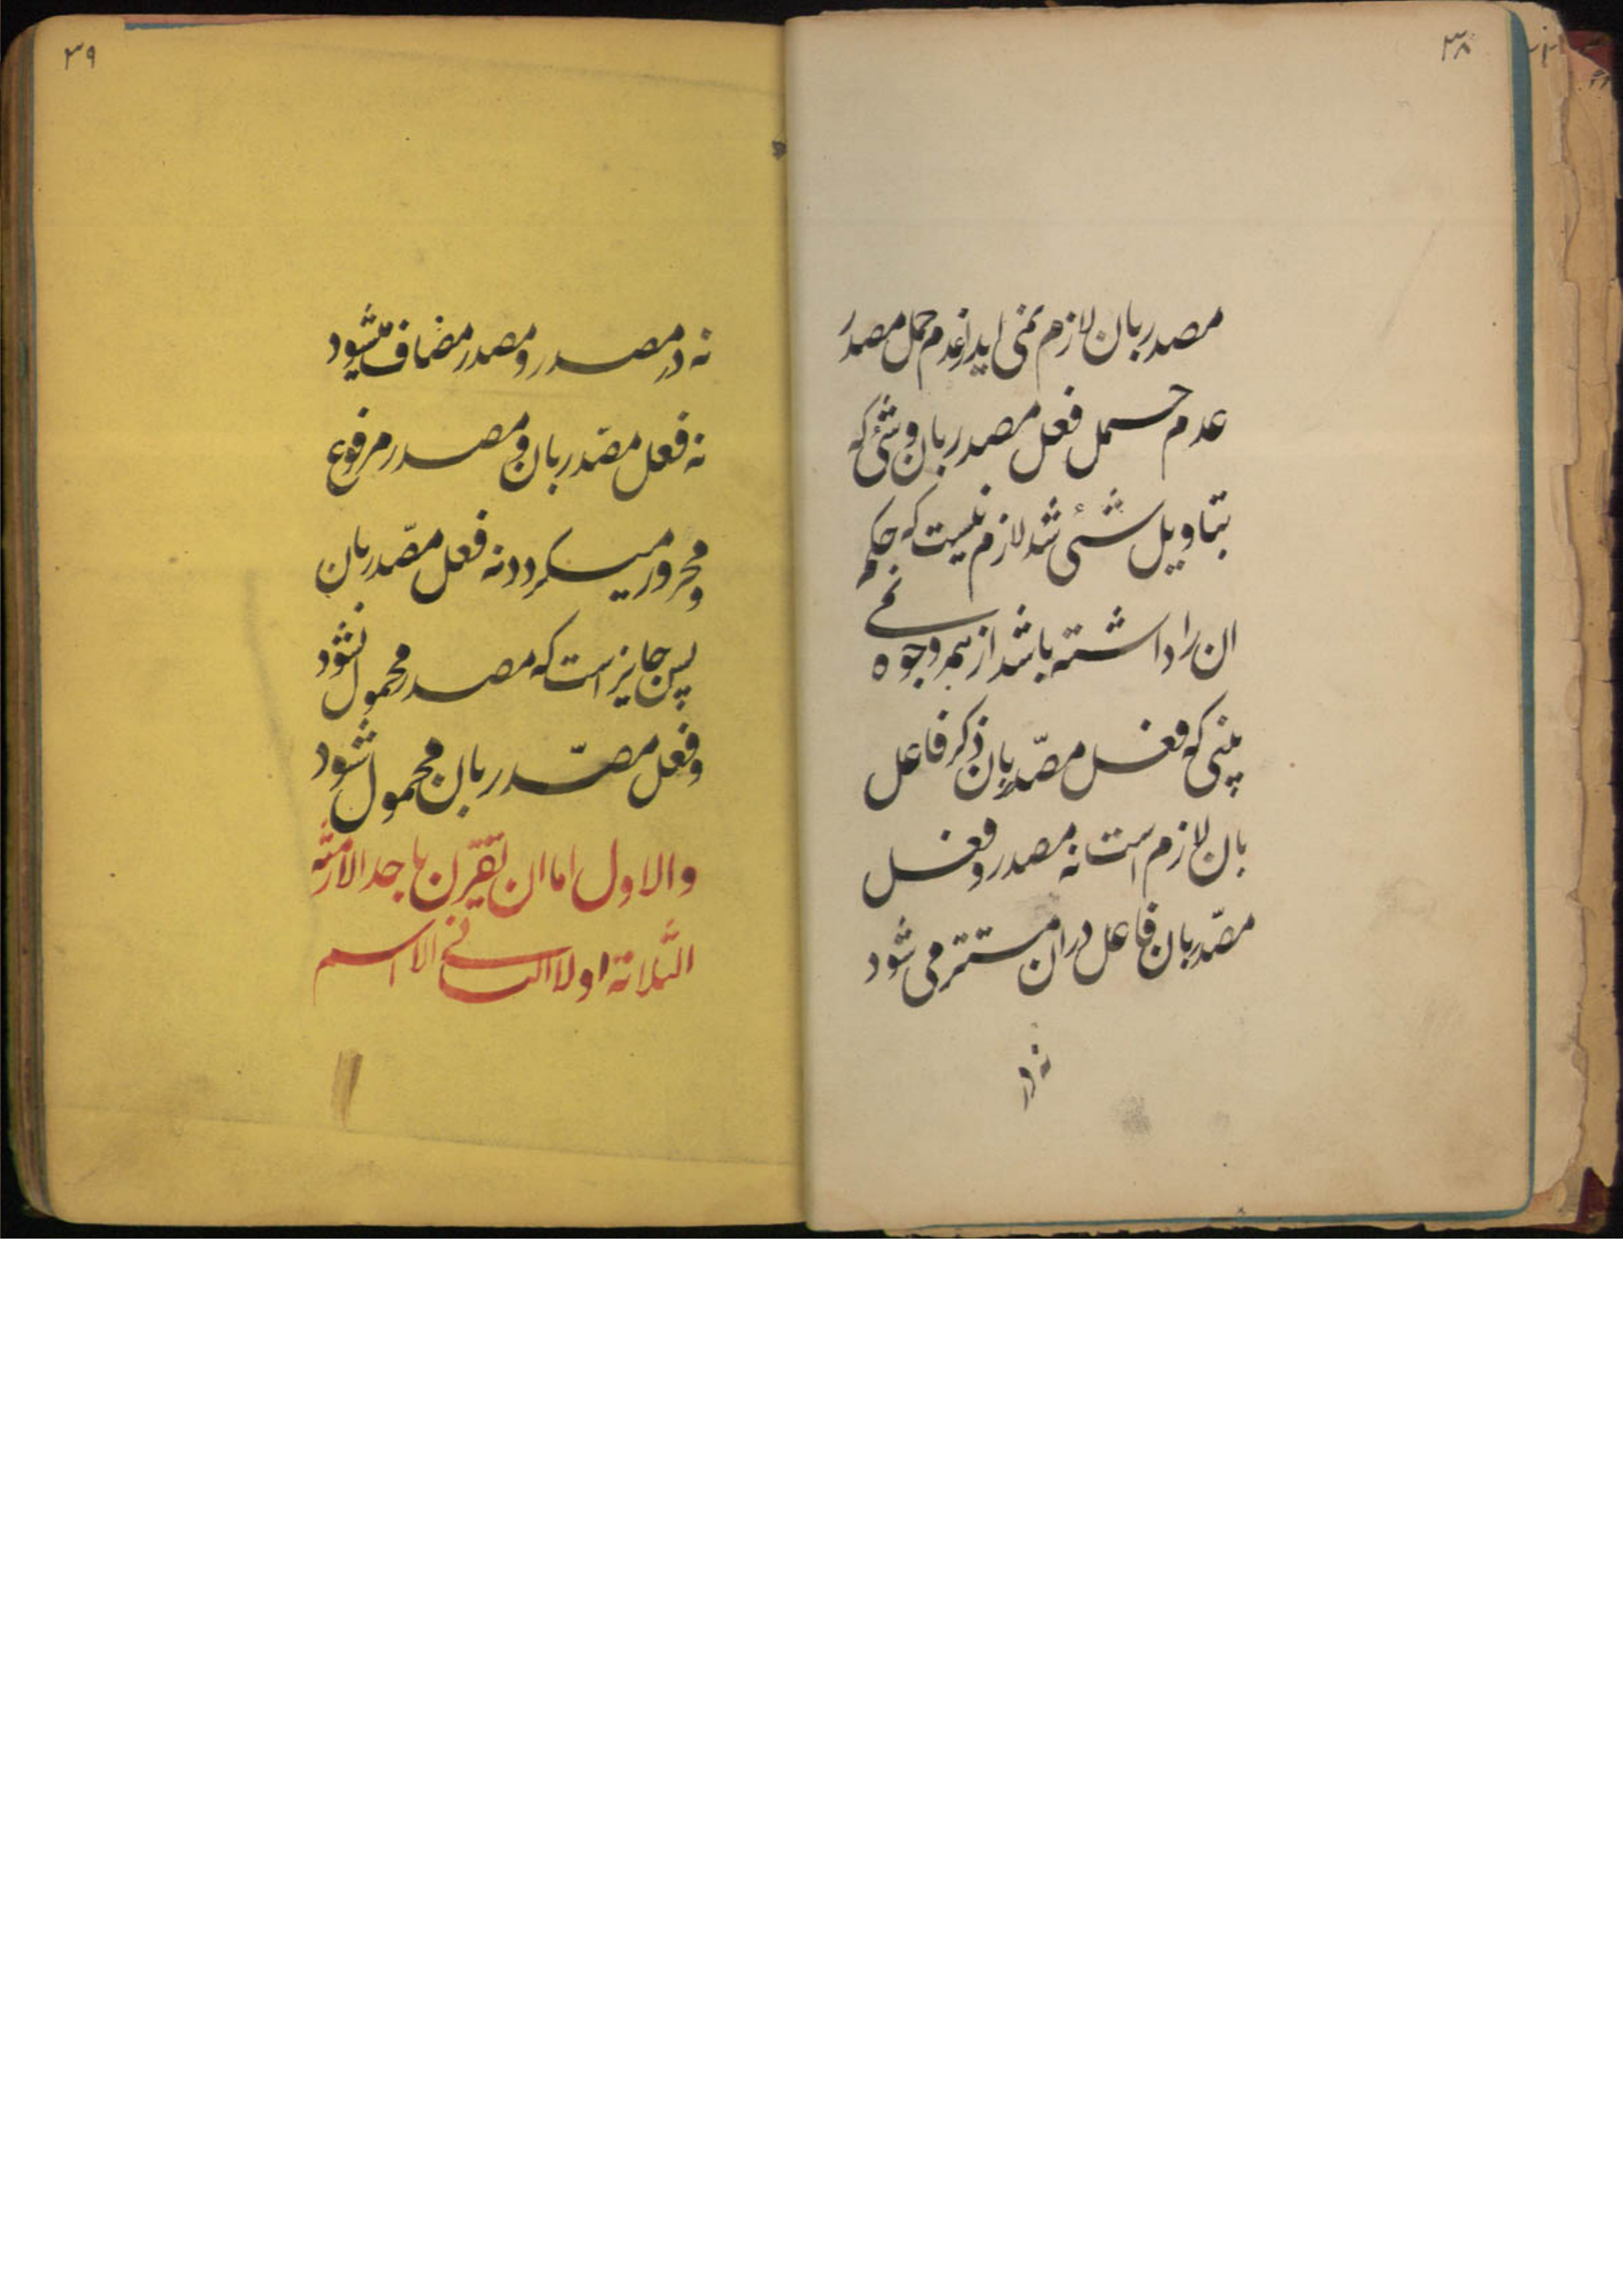 ۳۸
مصدر بان لازم نمی اید از عدم حمل مصدر
عدم حمل فعل مصدر بان و شئ که
بتاویل شئی شد لازم نیست که حکم
ان را داشته باشد از همه وجوه نمے
بینی که فعل مصّدر بان ذکر فاعل
بان لازم است نه مصدر و فعل
مصّدر بان فاعل دران مستتر می شود
نه در
۳۹
نه در مصدر و مصدر مضاف میشود
نه فعل مصّدر بان و مصدر مرفوع
و مجرور میگردد نه فعل مصّدر بان
پس جایز است که مصدر محمول نشود
و فعل مصّدر بان محمول شود
والاول اما ان یقترن باحد الازمنه
الثلاثة اولا الثانے الاسم